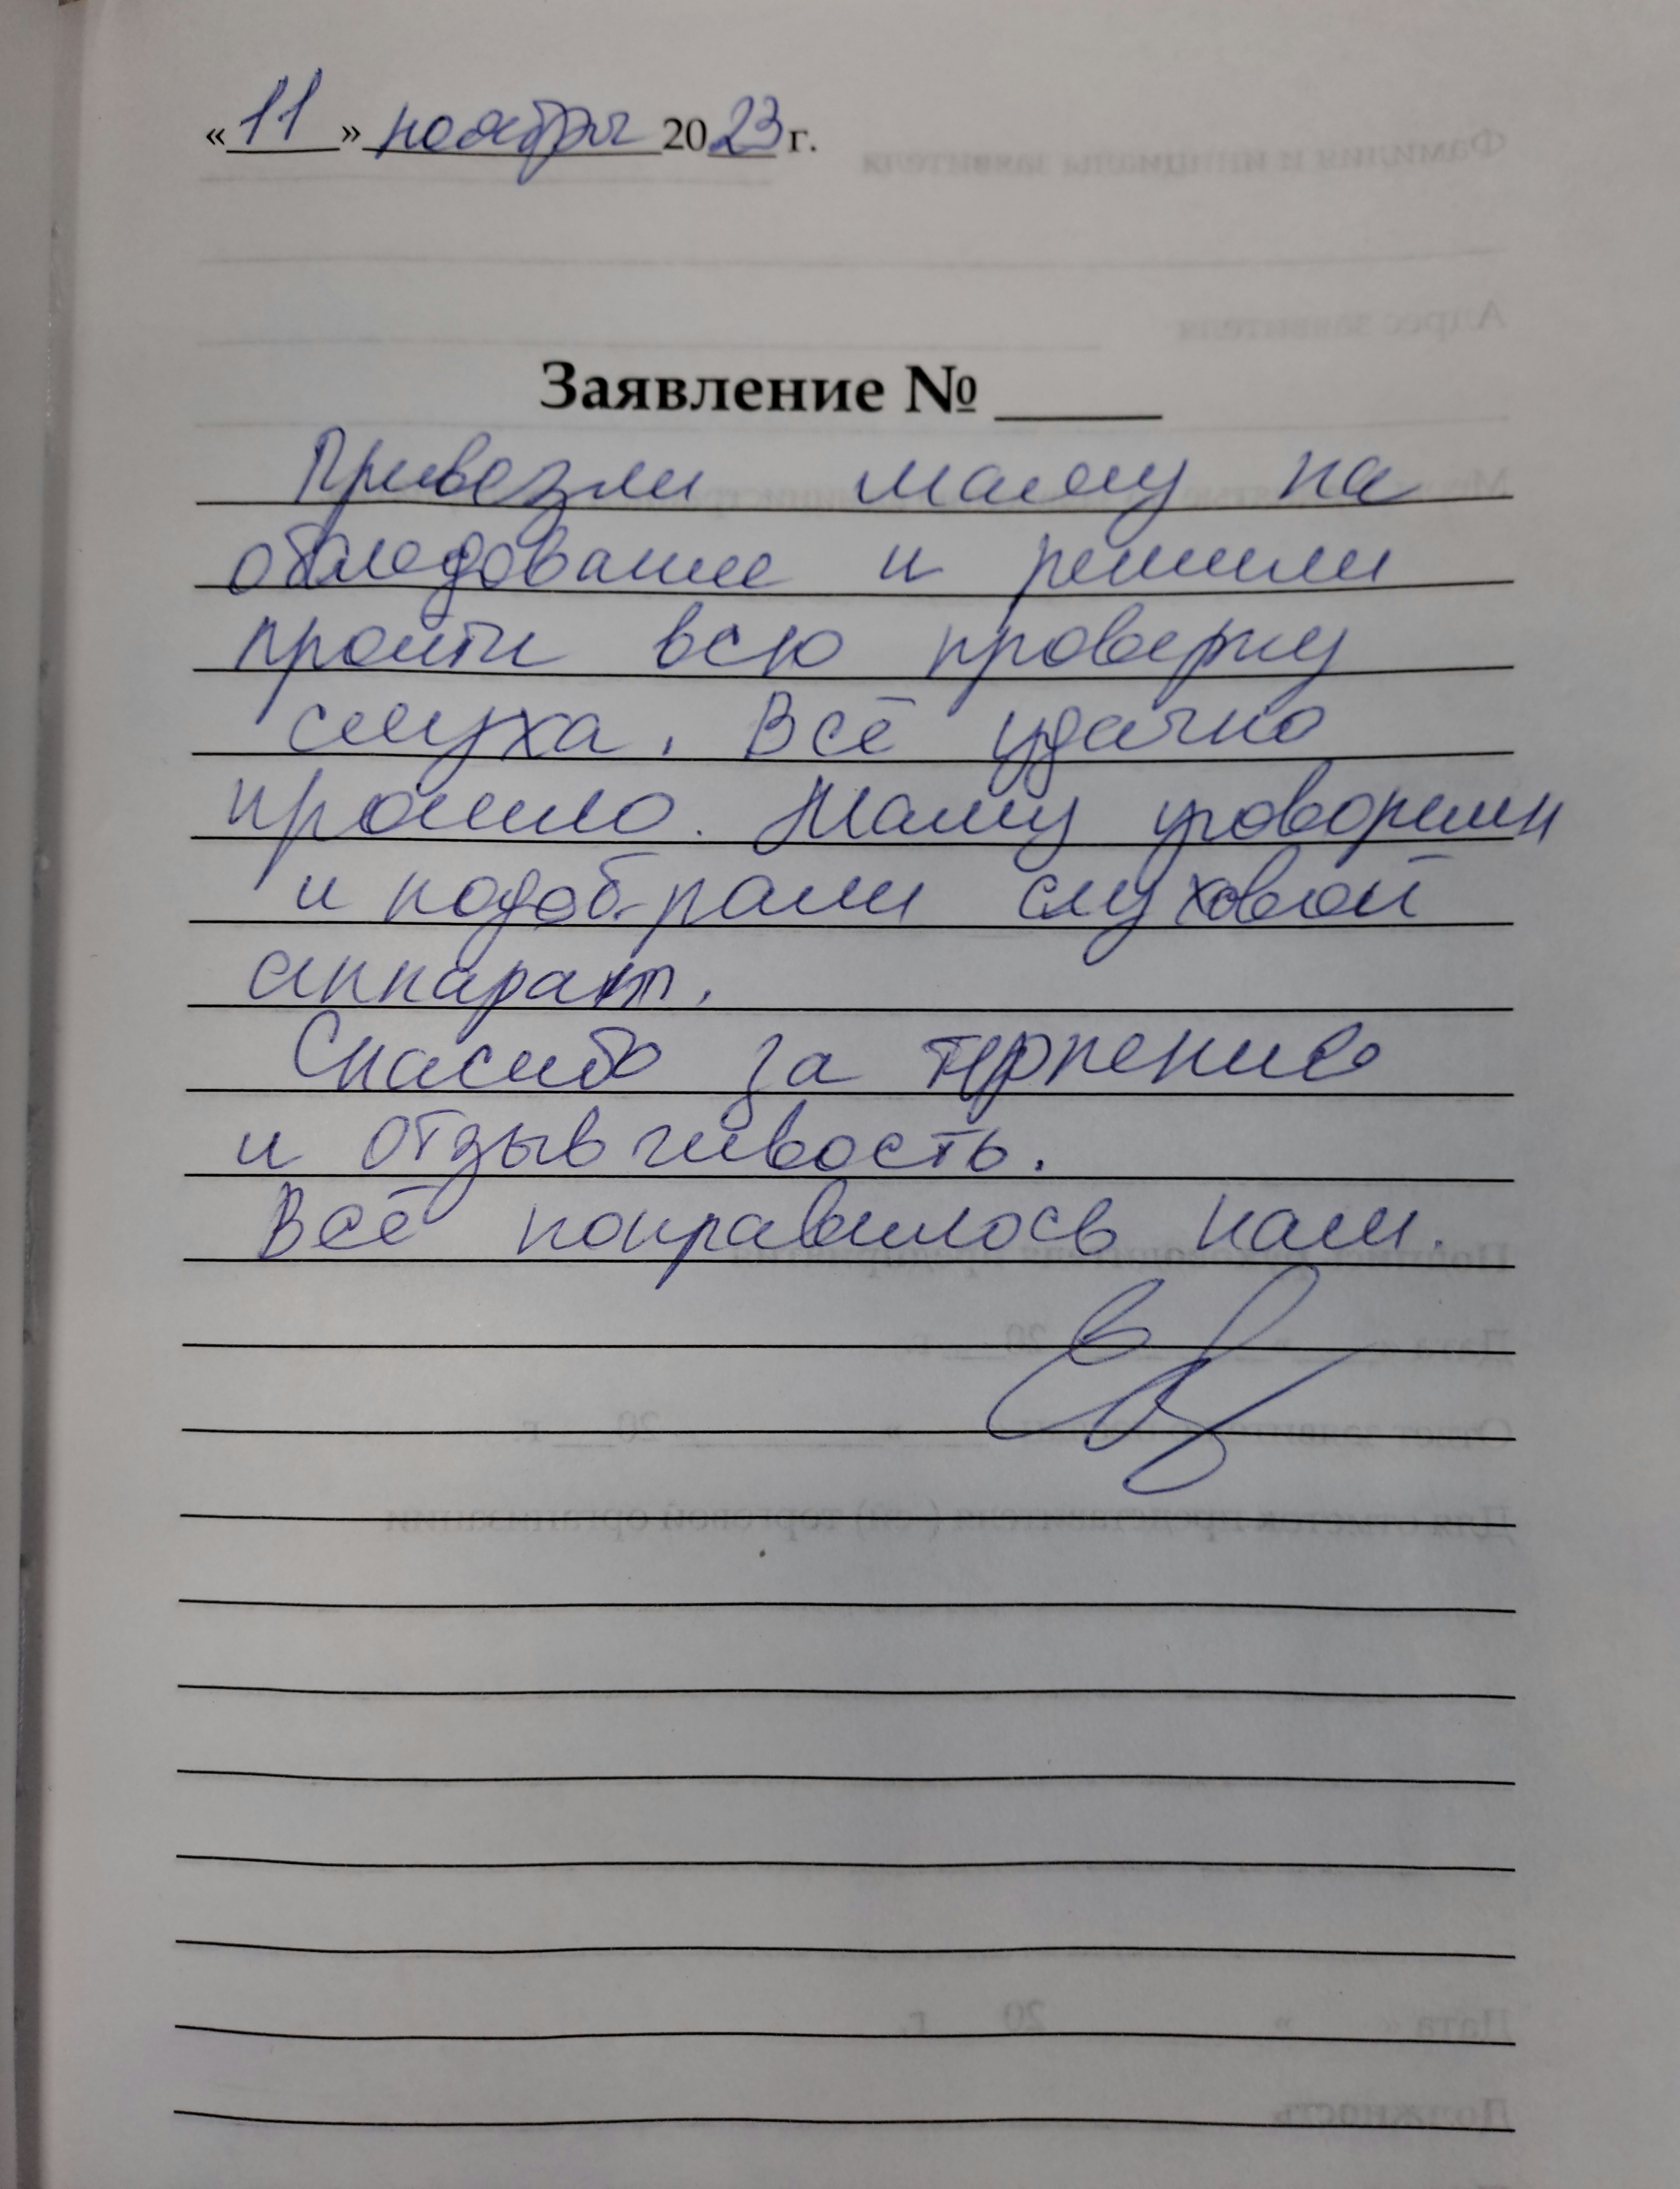 «11» ноября 2023 г.
Заявление № ____
Привезли маму на
обследование и решили
пройти всю проверку
слуха. Всё удачно
прошло. Маму уговорили
и подоб-рали слуховой
аппарат.
Спасибо за терпение
и отзывчивость.
Всё понравилось нам.